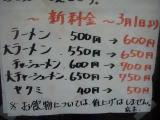 ～新料金～3月1日より
ラーメン 500円→600円
大ラーメン 550円→650円
チャーシューメン 600円→750円
大チャーシューメン 650円→850円
ヤクミ 40円→50円
※お食物については、値上げはしません。
店主